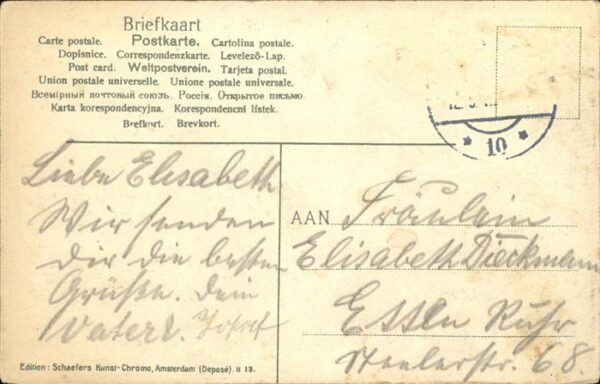 Briefkaart
Carte postale. Postkarte. Cartolina postale.
Dopisnice. Correspondenzkarte. Levelező-Lap.
Post card. Weltpostverein. Tarjeta postal.
Union postale universelle. Unione postale universale.
Всемірный почтовый союзъ. Россія. Открытое письмо.
Karta korespondencyjna. Korespondencni lístek.
Brefkort. Brevkort.
* 10 *
Liebe Elisabeth
Wir senden
dir die besten
Grüße. Dein
Vater u. Josef
AAN Fräulein
Elisabeth Dieckmann
Essen Ruhr
Steelerstr. 68.
Edition: Schaefers Kunst-Chromo, Amsterdam (Deposé). S 19.